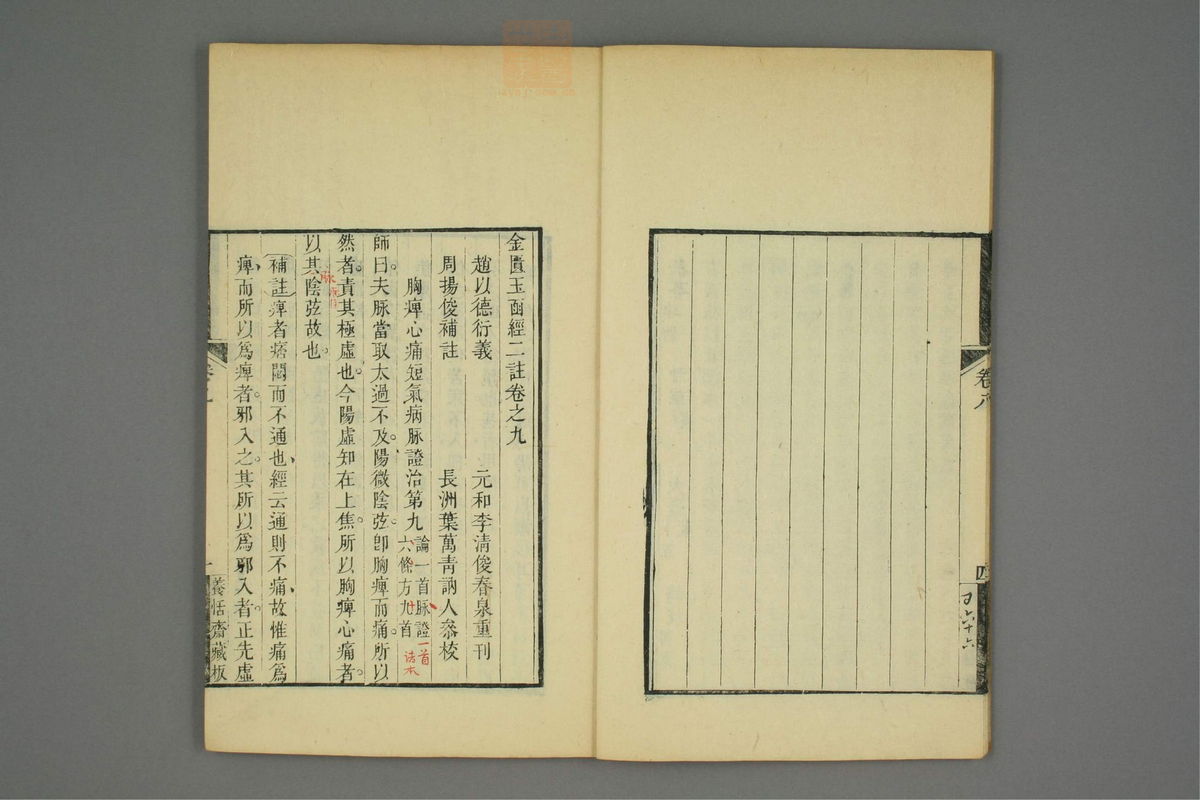 卷八
四
金匱玉函經二註卷之九
趙以德衍義 元和李清俊春泉重刊
周揚俊補註 長洲葉萬青訥人叅校
胸痺心痛短氣病脉證治第九 論一首脉證
六條方九首
一首
師曰夫脉當取太過不及陽微陰弦卽胸痺而痛所以
然者責其極虛也今陽虛知在上焦所以胸痺心痛者
以其陰弦故也
脉
補註痺者痞悶而不通也經云通則不痛故惟痛爲
痺而所以爲痺者邪入之其所以爲邪入者正先虛
一
養恬齋藏板